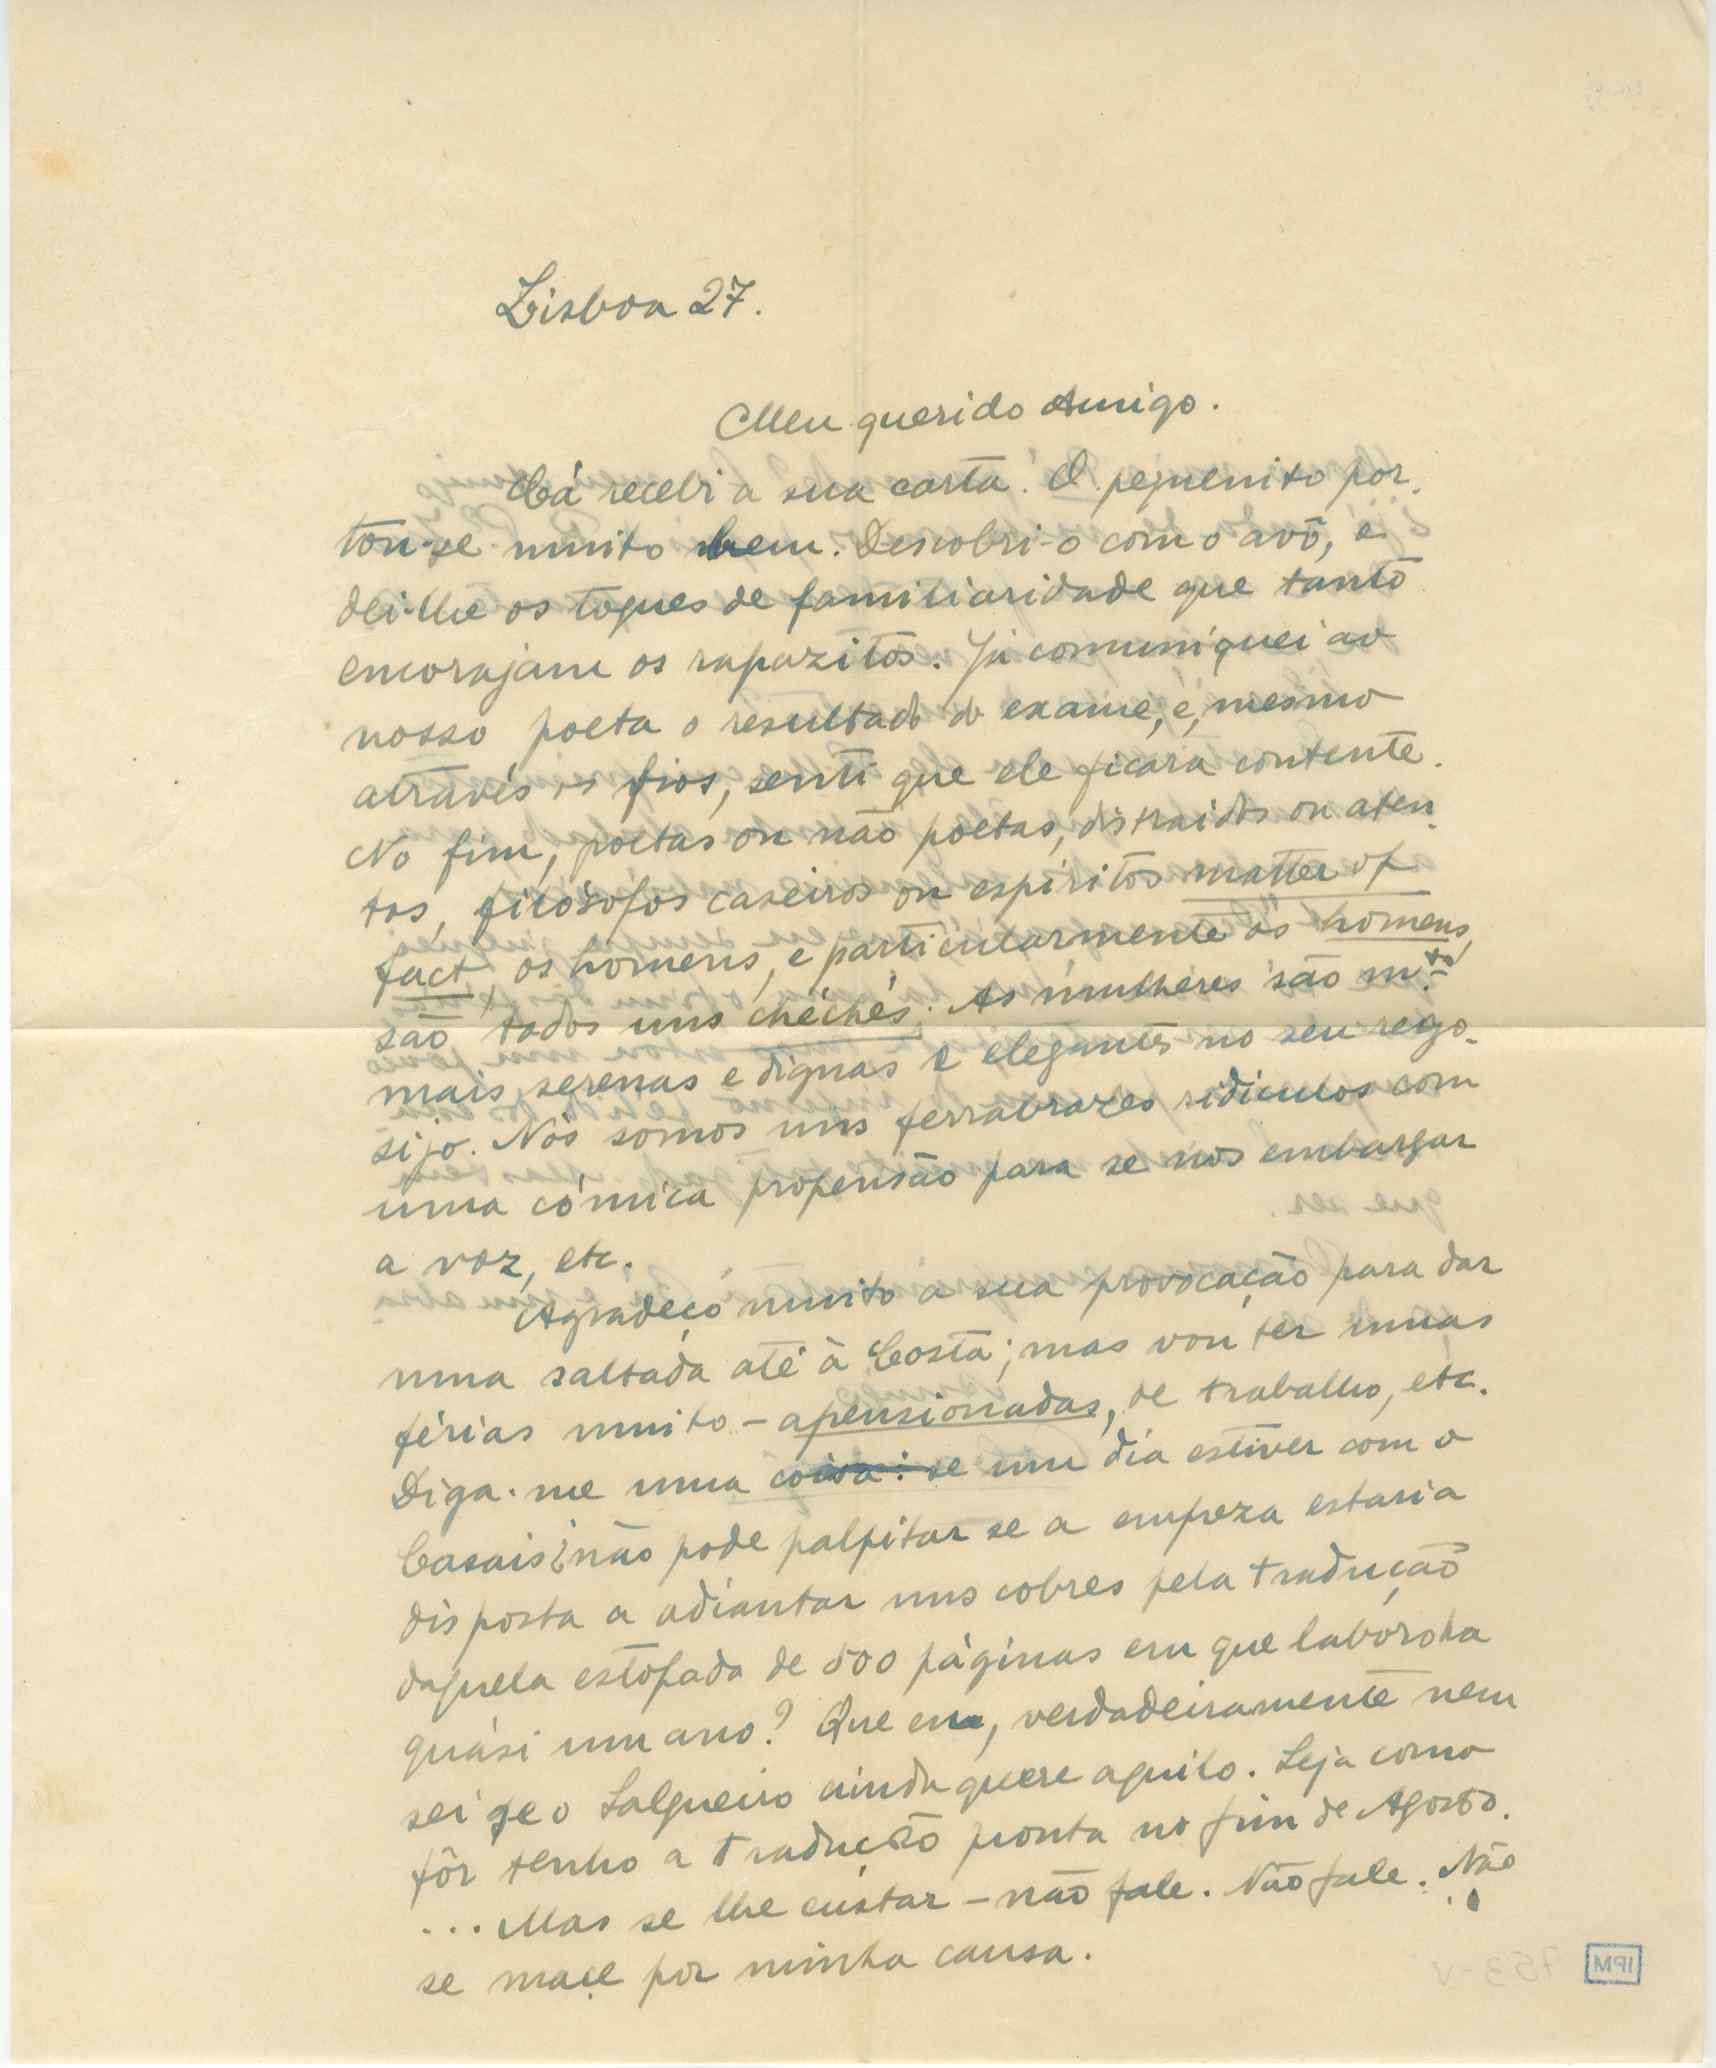 Lisboa 27.
Meu querido Amigo.
Cá recebi a sua carta. O pequenito por-
tou-se muito bem. Descobri-o com o avô, e
dei-lhe os toques de familiaridade que tanto
encorajam os rapazitos. Já comuniquei ao
nosso poeta o resultado do exame, e, mesmo
através os fios, senti que ele ficara contente.
No fim, poetas ou não poetas, distraidos ou aten-
tos, filósofos caseiros ou espíritos matter of
fact, os homens, e particularmente os homens,
são todos uns chéchés. As mulheres são m.to
mais serenas e dignas e elegantes no seu rego-
sijo. Nós somos uns ferrabrazes ridiculos com
uma cómica propensão para se nos embargar
a voz, etc.
Agradeço muito a sua provocação para dar
uma saltada até à Costa; mas vou ter umas
férias muito - apensionadas, de trabalho, etc.
Diga-me uma coisa: se um dia estiver com o
Casais ¿não pode palpitar se a empreza estaria
disposta a adiantar uns cobres pela tradução
daquela estofada de 500 páginas em que laboro ha
quási um ano? Que eu, verdadeiramente nem
sei se o Salgueiro ainda quere aquilo. Seja como
fôr tenho a tradução pronta no fim de Agosto.
... Mas se lhe custar - não fale. Não fale. Não
se mace por minha causa.
753-V
IPM